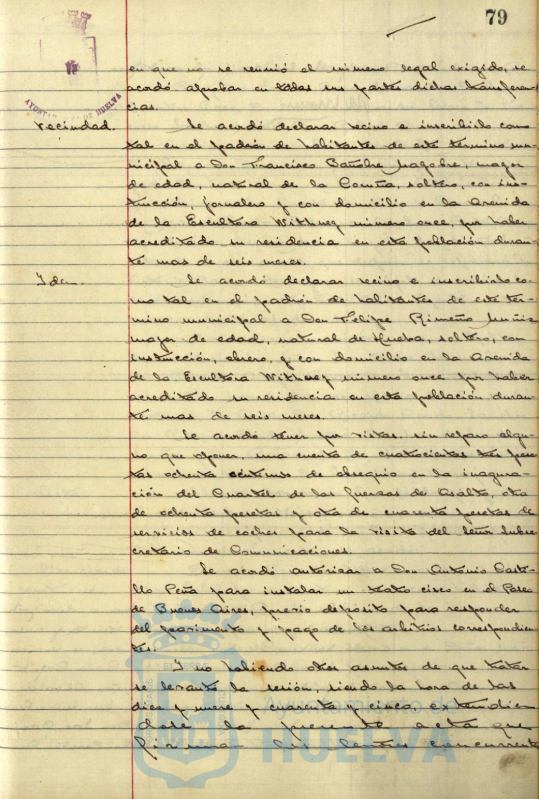 79
AYUNTAMIENTO DE HUELVA
en que no se reunió el número legal exigido, se
acordó aprobar en todas sus partes dichas transferen-
cias.
Vecindad.
Se acordó declarar vecino e inscribirlo como
tal en el padrón de habitantes de este término mu-
nicipal a Don Francisco Cañobre Magobre, mayor
de edad, natural de la Coruña, soltero, con ins-
trucción, jornalero y con domicilio en la Avenida
de la Escultora Withney número once, por haber
acreditado su residencia en esta población duran-
te mas de seis meses.
Idem.
Se acordó declarar vecino e inscribirlo co-
mo tal en el padrón de habitantes de este tér-
mino municipal a Don Felipe Rimeño Muñiz
mayor de edad, natural de Huelva, soltero, con
instrucción, obrero, y con domicilio en la Avenida
de la Escultora Withney número once por haber
acreditado su residencia en esta población duran-
te mas de seis meses.
Se acordó tener por vistas, sin reparo algu-
no que oponer, una cuenta de cuatrocientas tres pese-
tas ochenta céntimos de obsequio en la inaugu-
ración del Cuartel de las fuerzas de Asalto, otra
de ochenta pesetas y otra de cuarenta pesetas de
servicios de coches para la visita del Señor Subse-
cretario de Comunicaciones.
Se acordó autorizar a Don Antonio Casti-
llo Peña para instalar un teatro circo en el Paseo
de Buenos Aires, previo depósito para responder
del pavimento y pago de los arbitrios correspondien-
tes.
Y no habiendo otros asuntos de que tratar
se levantó la sesión, siendo la hora de las
diez y nueve y cuarenta y cinco, extendien-
dose la presente acta que
firman los Señores concurrente
HUELVA